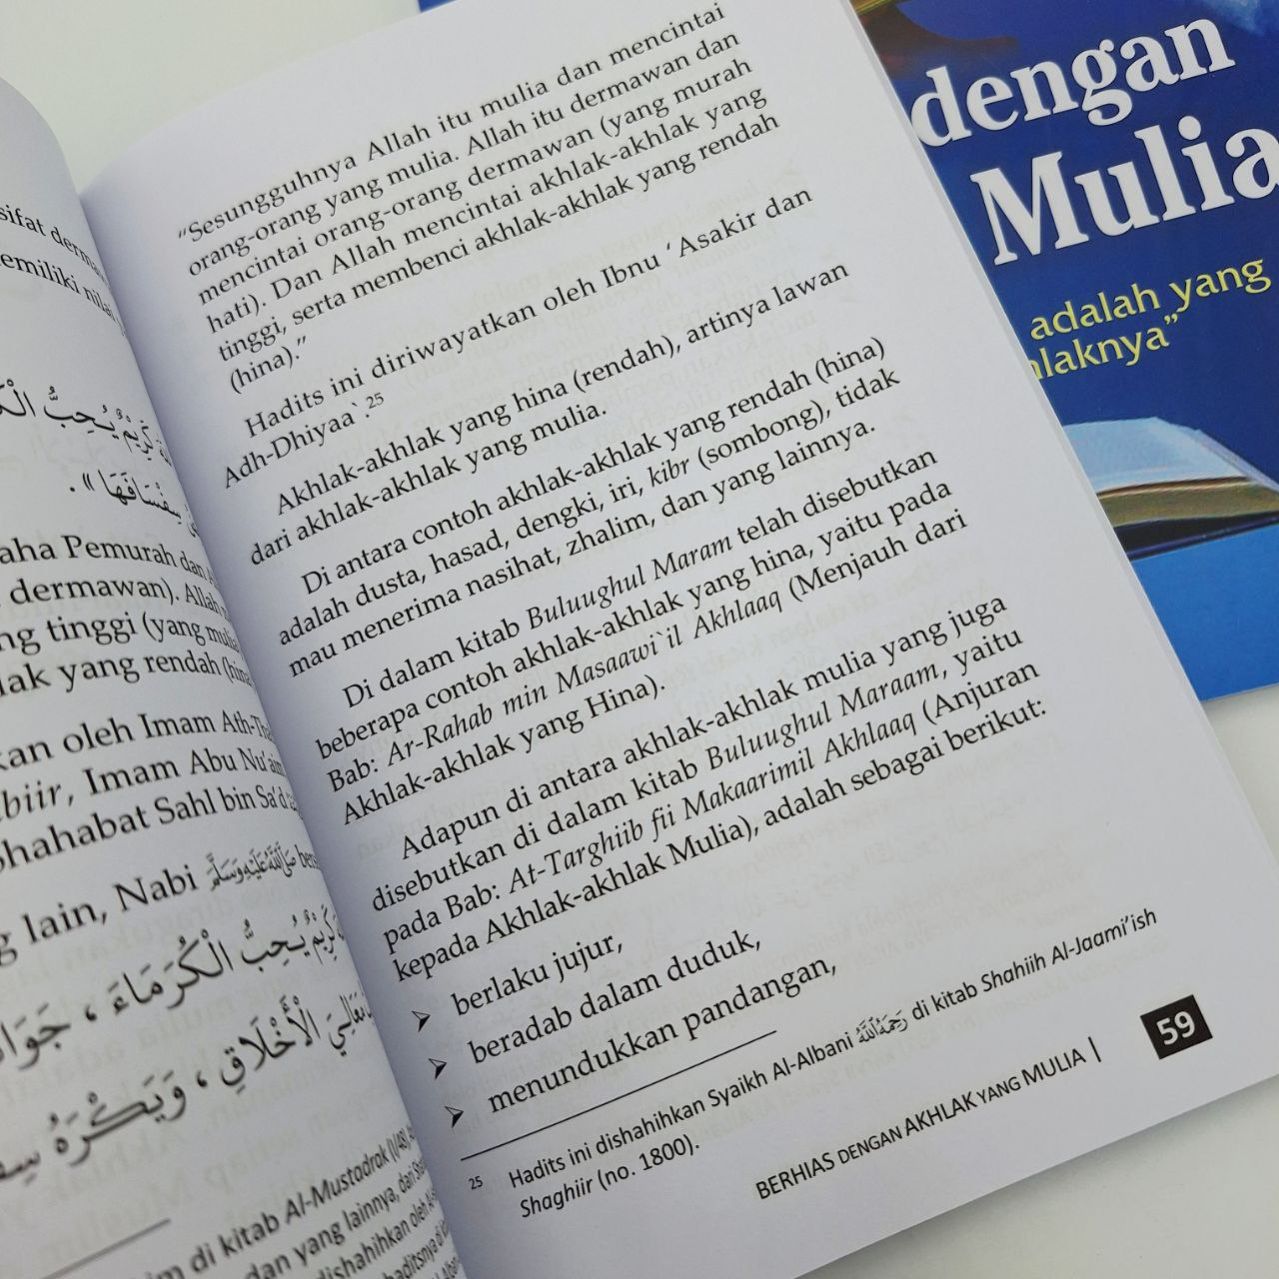 sifat
emiliki
كَرِيْمٌ يُحِبُّ
سِفْسَافَهَا » .
aha Pemurah dan
dermawan). Allah
ng tinggi (yang mulia
lak yang rendah (hina
kan oleh Imam
biir, Imam Abu Nu'aim
Shahabat Sahl bin Sa'd
g lain, Nabi ﷺ
كَرِيْمٌ يُحِبُّ الْكُرَمَاءَ ،
الْأَخْلَاقِ ، وَيَكْرَهُ
di kitab Al-Mustadrok (I/48),
dan yang lainnya, dari
dishahihkan oleh
"Sesungguhnya Allah itu mulia dan mencintai
orang-orang yang mulia. Allah itu dermawan dan
mencintai orang-orang dermawan (yang murah
hati). Dan Allah mencintai akhlak-akhlak yang
tinggi, serta membenci akhlak-akhlak yang rendah
(hina)."
Hadits ini diriwayatkan oleh Ibnu 'Asakir dan
Adh-Dhiyaa`.25
Akhlak-akhlak yang hina (rendah), artinya lawan
dari akhlak-akhlak yang mulia.
Di antara contoh akhlak-akhlak yang rendah (hina)
adalah dusta, hasad, dengki, iri, kibr (sombong), tidak
mau menerima nasihat, zhalim, dan yang lainnya.
Di dalam kitab Buluughul Maram telah disebutkan
beberapa contoh akhlak-akhlak yang hina, yaitu pada
Bab: Ar-Rahab min Masaawi`il Akhlaaq (Menjauh dari
Akhlak-akhlak yang Hina).
Adapun di antara akhlak-akhlak mulia yang juga
disebutkan di dalam kitab Buluughul Maraam, yaitu
pada Bab: At-Targhiib fii Makaarimil Akhlaaq (Anjuran
kepada Akhlak-akhlak Mulia), adalah sebagai berikut:
➢ berlaku jujur,
➢ beradab dalam duduk,
➢ menundukkan pandangan,
25 Hadits ini dishahihkan Syaikh Al-Albani رَحِمَهُ اللَّهُ di kitab Shahiih Al-Jaami'ish
Shaghiir (no. 1800).
BERHIAS DENGAN AKHLAK YANG MULIA | 59
dengan
Mulia
adalah yang
hlaknya"